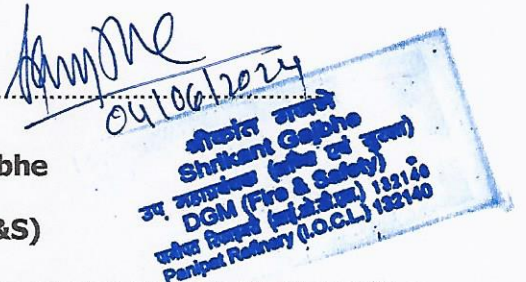 04/06/2024
bhe
&S)
श्रीकांत गजभे
Shrikant Gajbhe
उप महाप्रबंधक (अग्नि एवं सुरक्षा)
DGM (Fire & Safety)
पानीपत रिफाइनरी (आई.ओ.सी.एल.) 132140
Panipat Refinery (I.O.C.L.) 132140